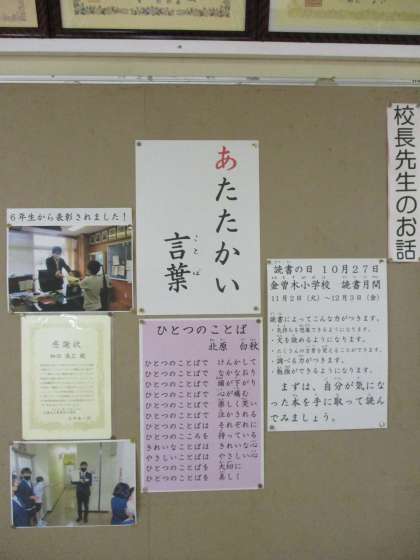 校長先生のお話
あたたかい
言葉
ことば
6年生から表彰されました！
感謝状
読書の日 10月27日
金曽木小学校 読書月間
11月2日(火)～12月3日(金)
読書によってこんな力がつきます。
・気持ちを想像できるようになります。
・文を読めるようになります。
・たくさんの言葉を覚えることができます。
・調べる力がつきます。
・勉強ができるようになります。
まずは、自分が気になった本を手に取って読んでみましょう。
ひとつのことば
北原 白秋
ひとつのことばで けんかして
ひとつのことばで なかなおり
ひとつのことばで 頭が下がり
ひとつのことばで 心が痛む
ひとつのことばで 楽しく笑い
ひとつのことばで 泣かされる
ひとつのことばは それぞれに
ひとつのこころを 持っている
きれいなことばは きれいな心
やさしいことばは やさしい心
ひとつのことばを 大切に
ひとつのことばを 美しく